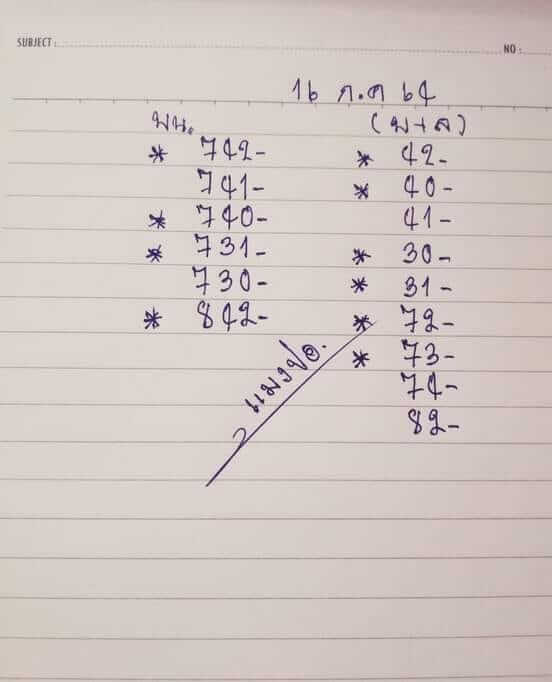 SUBJECT : NO :
16 ก.ค 64
บน. (บ+ล)
* 742- * 42-
741- * 40-
* 740- 41-
* 731- * 30-
730- * 31-
* 842- * 72-
* 73-
74-
82-